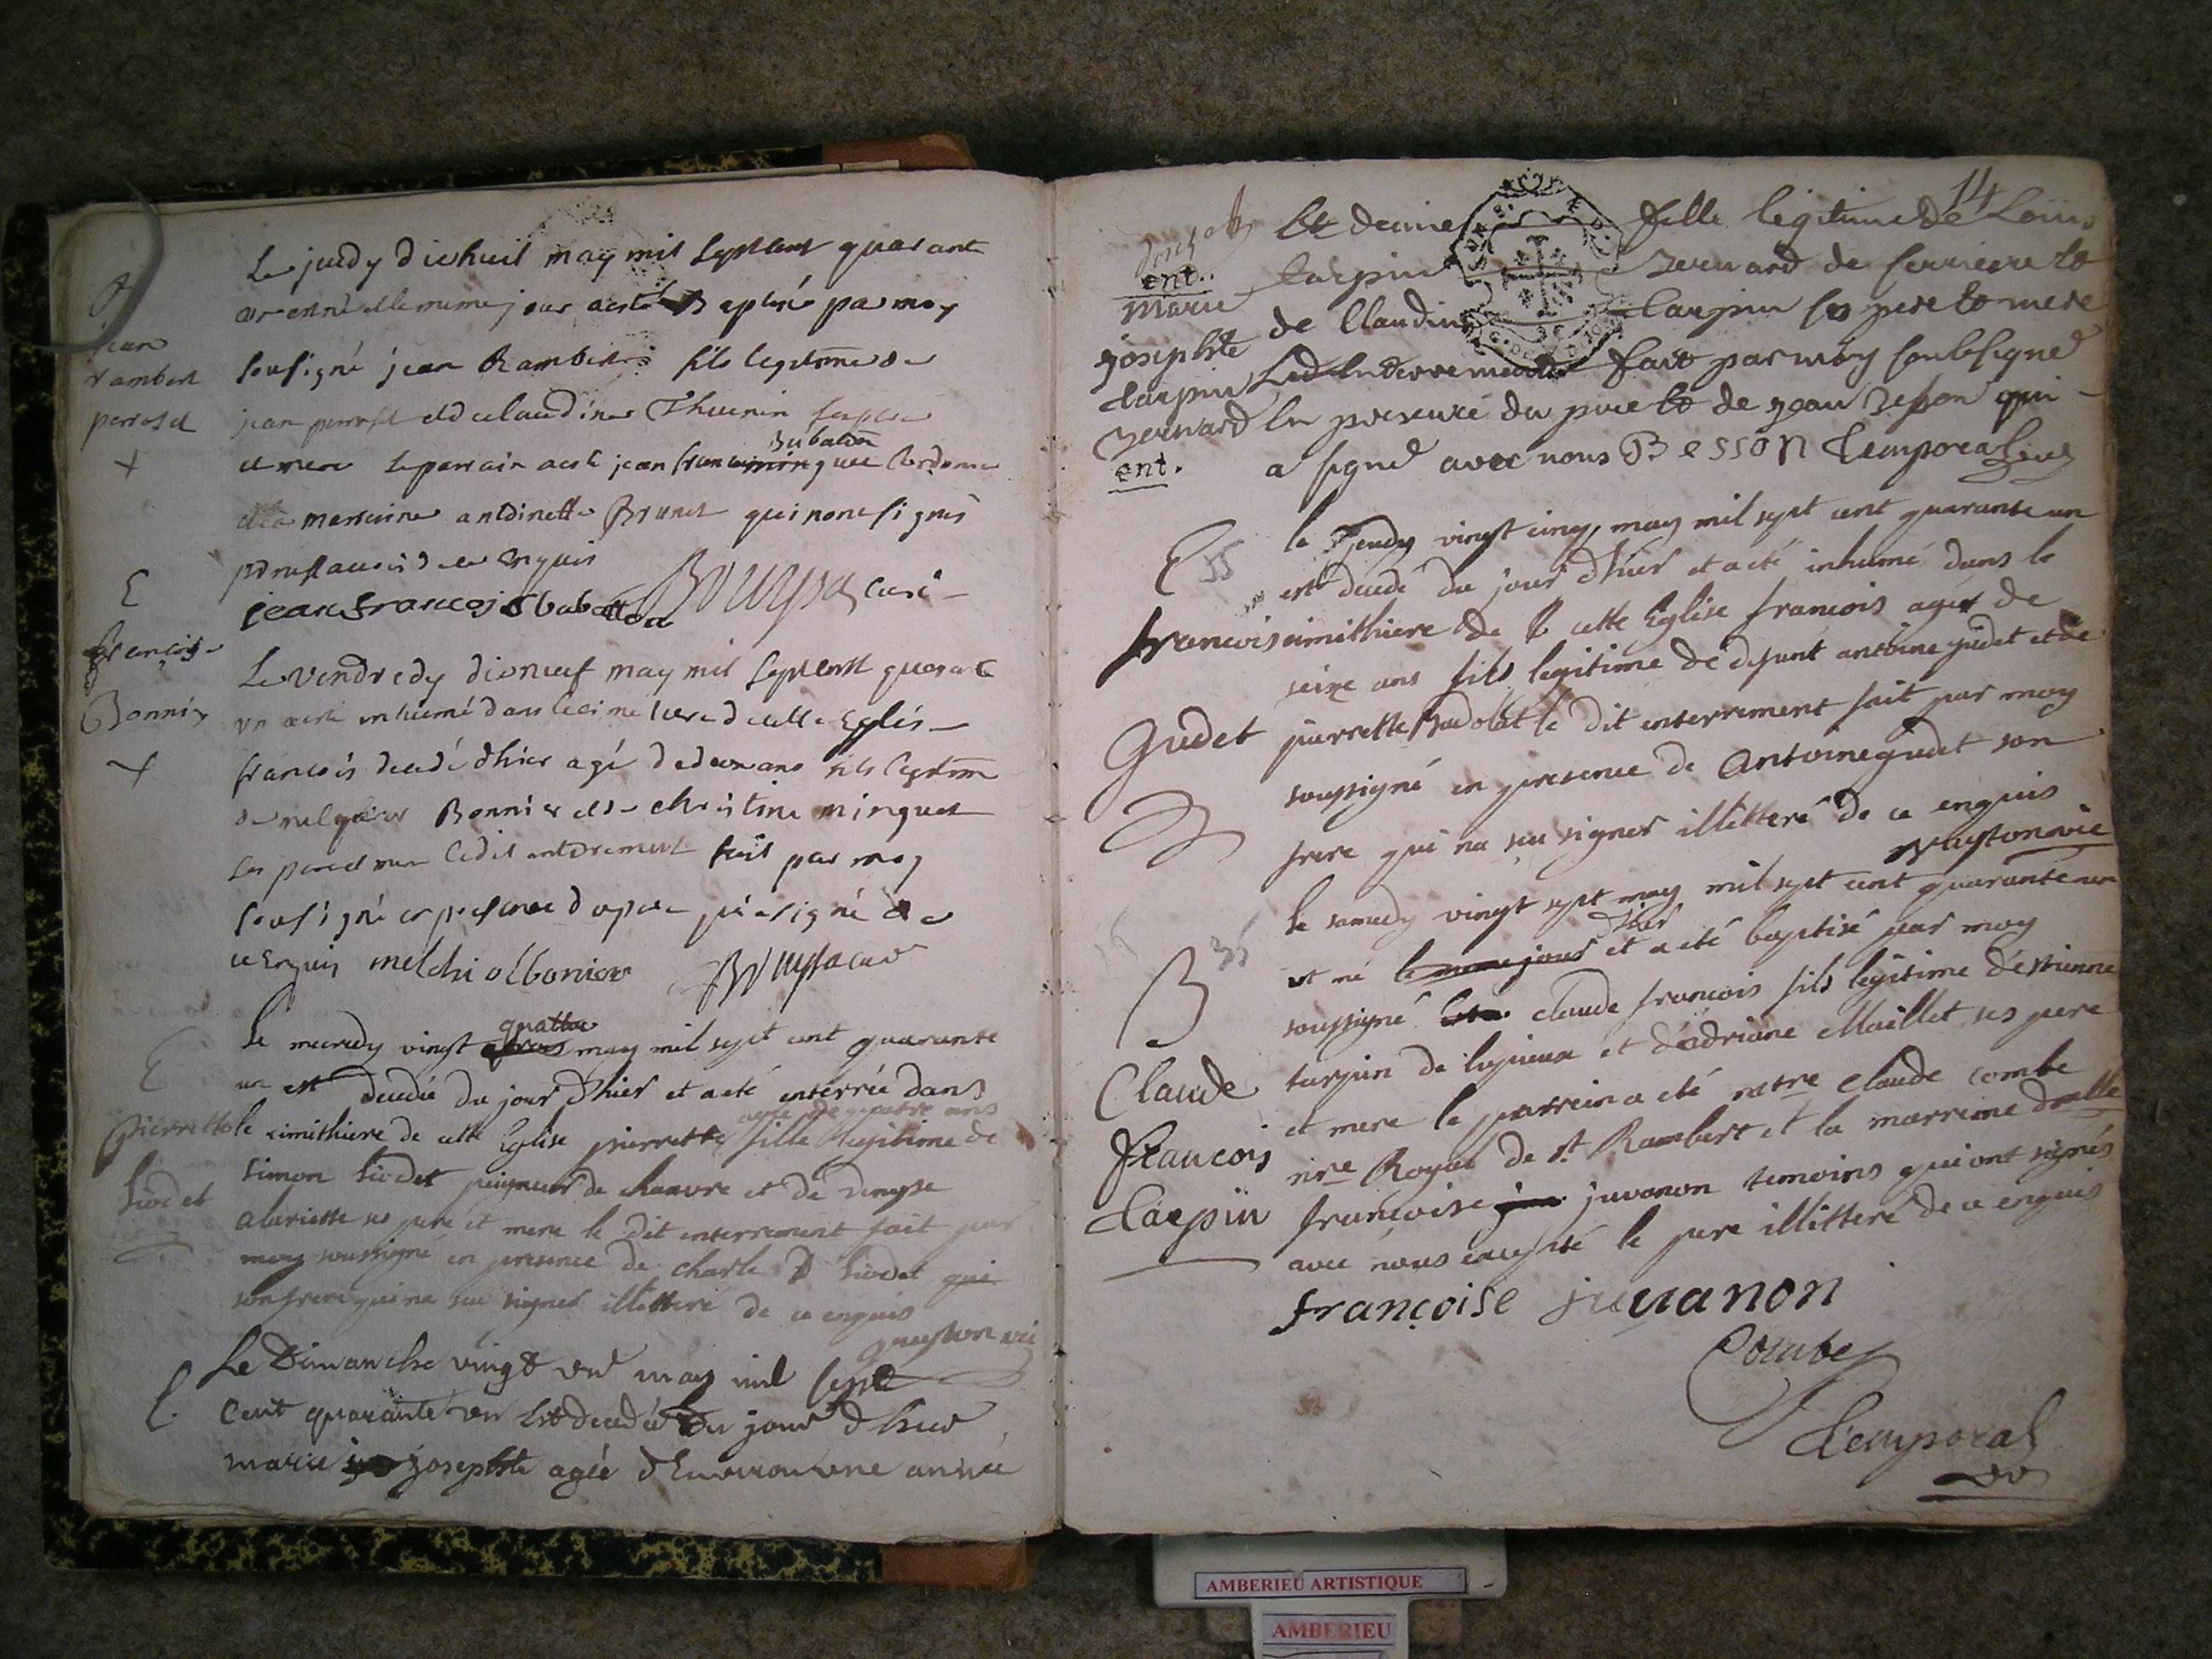 Le jeudy dixhuit may mil septcent quarante
un est né et le meme jour a esté Baptisé par moy
jean
rambert
perroset
+
sousigné jean Rambert fils legitime de
jean perroset et de claudine Thevenin ses pere
Bubaton
et mere le parrain a esté jean francois
et la marreine antoinette Brunet qui n'ont signés
pour ne scavoir de ce enquis
jean francois bubatton curé
E
francois
Bonnier
+
Le vendredy dixneuf may mil septcent quarante
un a esté inhumé dans le cimetiere de cette Eglise
francois decedé d'hier agé de deux ans fils legitime
de melchior Bonnier et de christine minguet
ses pere et mere ledit enterrement fait par moy
sousigné en presence du pere qui a signé de
ce Enquis melchiol bonier
E
pierrette
Liodet
quattre
le mecredy vingt may mil sept cent quarante
un est decedée du jour d'hier et a eté enterrée dans
agée de quatre ans
le cimithiere de cette Eglise pierrette fille legitime de
simon Liodet peigneur de chanvre et de denyse
alariette ses pere et mere le dit enterrement fait par
moy soussigné en presence de charle Liodet qui
son frere qui na scu signer illitteré de ce enquis
E.
Le Dimanche vingt un may mil sept
cent quarante un est decedée du jour d'hier
marie josephte agée d'environ une année
14
ent.
marie
josephte
tarpin
bernard
ent.
et demie fille legitime de Loüis
tarpin bernard de serriere et
de Claudine tarpin ses pere et mere
Led enterrement fait par moy soubsigné
en presence du pere et de jean besson qui
a signé avec nous Besson Temporal vic
E 35
francois
Gudet
le Jeudy vingt cinq may mil sept cent quarante un
est decedé du jour d'hier et a eté inhumé dans le
cimithiere de cette Eglise francois agé de
seize ans fils legitime de defunt antoine gudet et de
pierrette le dit enterrement fait par moy
soussigné en presence de Antoine gudet son
frere qui na scu signer illitteré de ce enquis
B 35
Claude
francois
tarpin
le samedy vingt sept may mil sept cent quarante un
d'hier
est né le meme jour et a eté baptisé par moy
soussigné claude francois fils legitime d'estienne
turpin de lupieux et d'adriane Maillet ses pere
et mere le parrein a eté mtre claude combe
nre Royal de st Rambert et la marreine dlle
françoise juvanon temoins qui ont signés
avec nous excepté le pere illitteré de ce enquis
françoise juvanon
Combe
Temporal
vic
AMBERIEU ARTISTIQUE
AMBERIEU